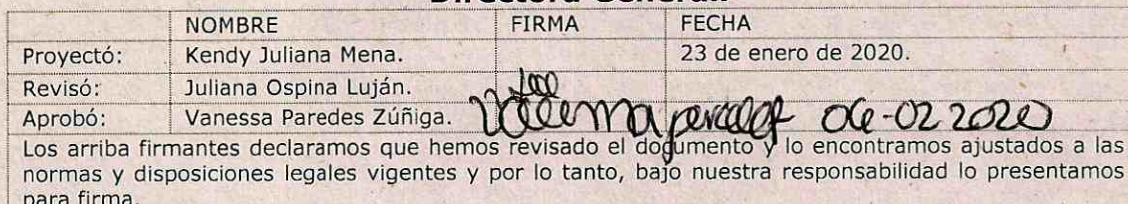 Directora General.
NOMBRE FIRMA FECHA
Proyectó: Kendy Juliana Mena. 23 de enero de 2020.
Revisó: Juliana Ospina Luján.
Aprobó: Vanessa Paredes Zúñiga. 06-02 2020
Los arriba firmantes declaramos que hemos revisado el documento y lo encontramos ajustados a las
normas y disposiciones legales vigentes y por lo tanto, bajo nuestra responsabilidad lo presentamos
para firma.